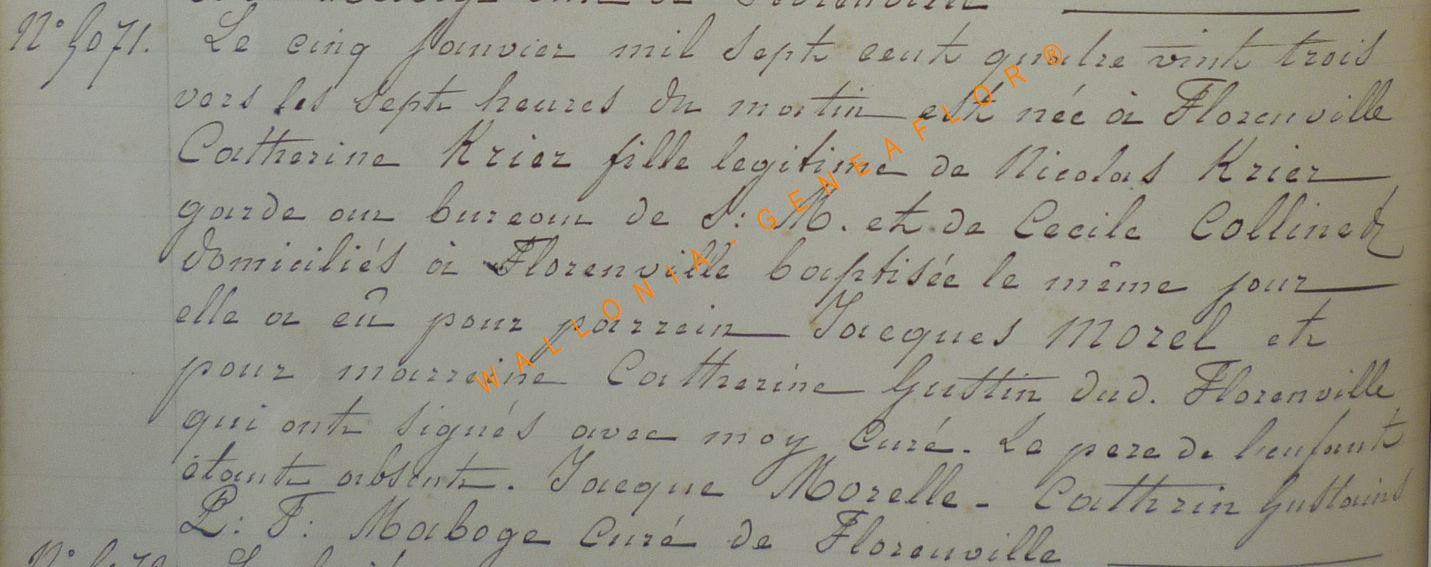 de Florenville
N° 5071. Le cinq janvier mil sept cent quatre vint trois
vers les sept heures du matin est née à Florenville
Catherine Krier fille legitime de Nicolas Krier
garde au bureau de S: M. et de Cecile Collinet
domiciliés à Florenville baptisée le même jour
elle a eû pour parrein Jacques Morel et
pour marreine Catherine Gustin dud. Florenville
qui ont signés avec moy Curé. Le pere de l'enfant
étant absent. Jacque Morelle - Cathrin Gustains
P: F: Maboge Curé de Florenville
WALLONIA-GENEAFLOR®